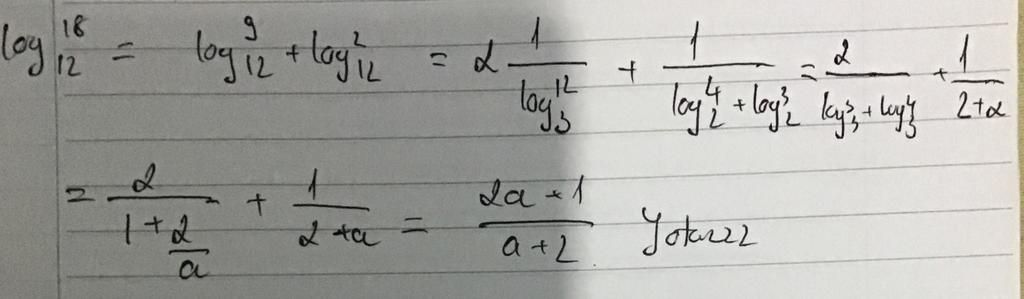 log₁₂¹⁸ = log₁₂⁹ + log₁₂² = 2 1/log₃¹² + 1/(log₂⁴ + log₂³) = 2/(log₃³ + log₃⁴) + 1/(2+a)
= 2/(1 + 2/a) + 1/(2+a) = (2a+1)/(a+2)